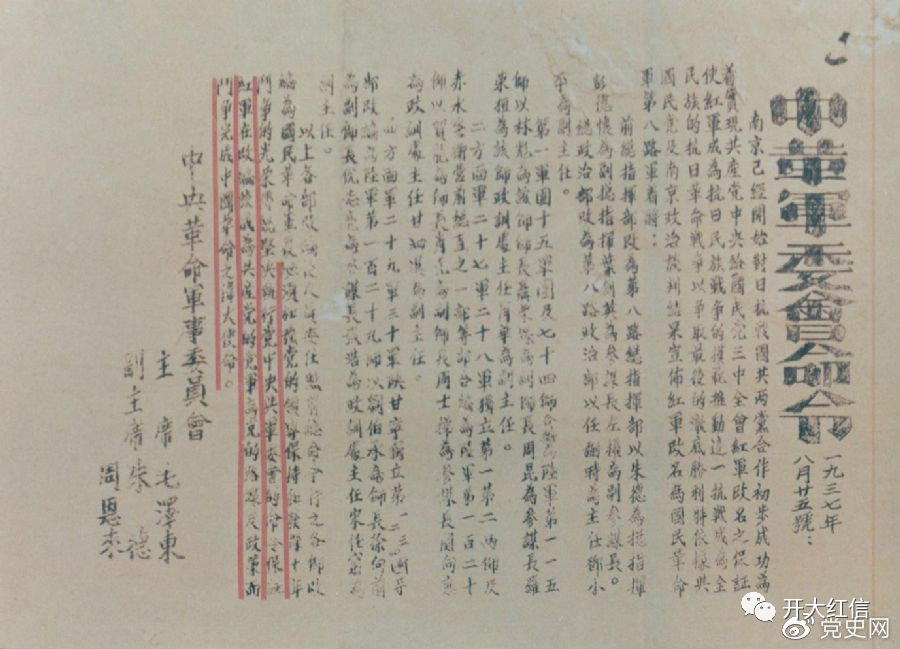 中華軍委會命令
一九三七年
八月廿五號：
南京已經開始對日抗戰國共兩黨合作初步成功為
着實現共産党中央給國民党三中全會紅軍改名之保証
使紅軍成為抗日民族戰爭的模範推動這一抗戰成為全
民族的抗日革命戰爭以爭取最後的澈底勝利特依據共
國民党及南京政治談判結果宣佈紅軍改名為國民革命
軍第八路軍着將：
前總指揮部改為第八路總指揮部以朱德為總指揮
彭德懷為副總指揮葉劍英為參謀長左權為副參謀長。
總政治部改為第八路政治部以任弼時為主任鄧小
平為副主任。
第一軍團十五軍團及七十四師合編為陸軍第一一五
師以林彪為該師師長聶榮臻為副師長周昆為參謀長羅
榮桓為該師政訓處主任肖華為副主任。
二方面軍二十七軍二十八軍獨立第一第二兩師及
赤水警衛營前總直之一部等部合編為陸軍第一百二十
師以賀龍為師長肖克為副師長周士揮為參謀長關向應
為政訓處主任甘泗淇為副主任。
四方面軍二十九軍三十軍陝甘寧獨立第一二三四等
部改編為陸軍第一百二十九師以劉伯承為師長徐向前
為副師長倪志亮為參謀長張浩為政訓處主任宋任窮為
副主任。
以上各部改編後人員委任照前總命令行之各部改
編為國民革命軍後必須加強党的領導保持和發揮十年
鬥爭的光榮傳統堅決執行党中央與軍委會的命令保証
紅軍在改編後成為共産党的党軍為党的路線及政策而
鬥爭完成中國革命之偉大使命。
中央革命軍事委員會
主 席 毛澤東
副主席 朱 德
周恩來
开大红信
党史网